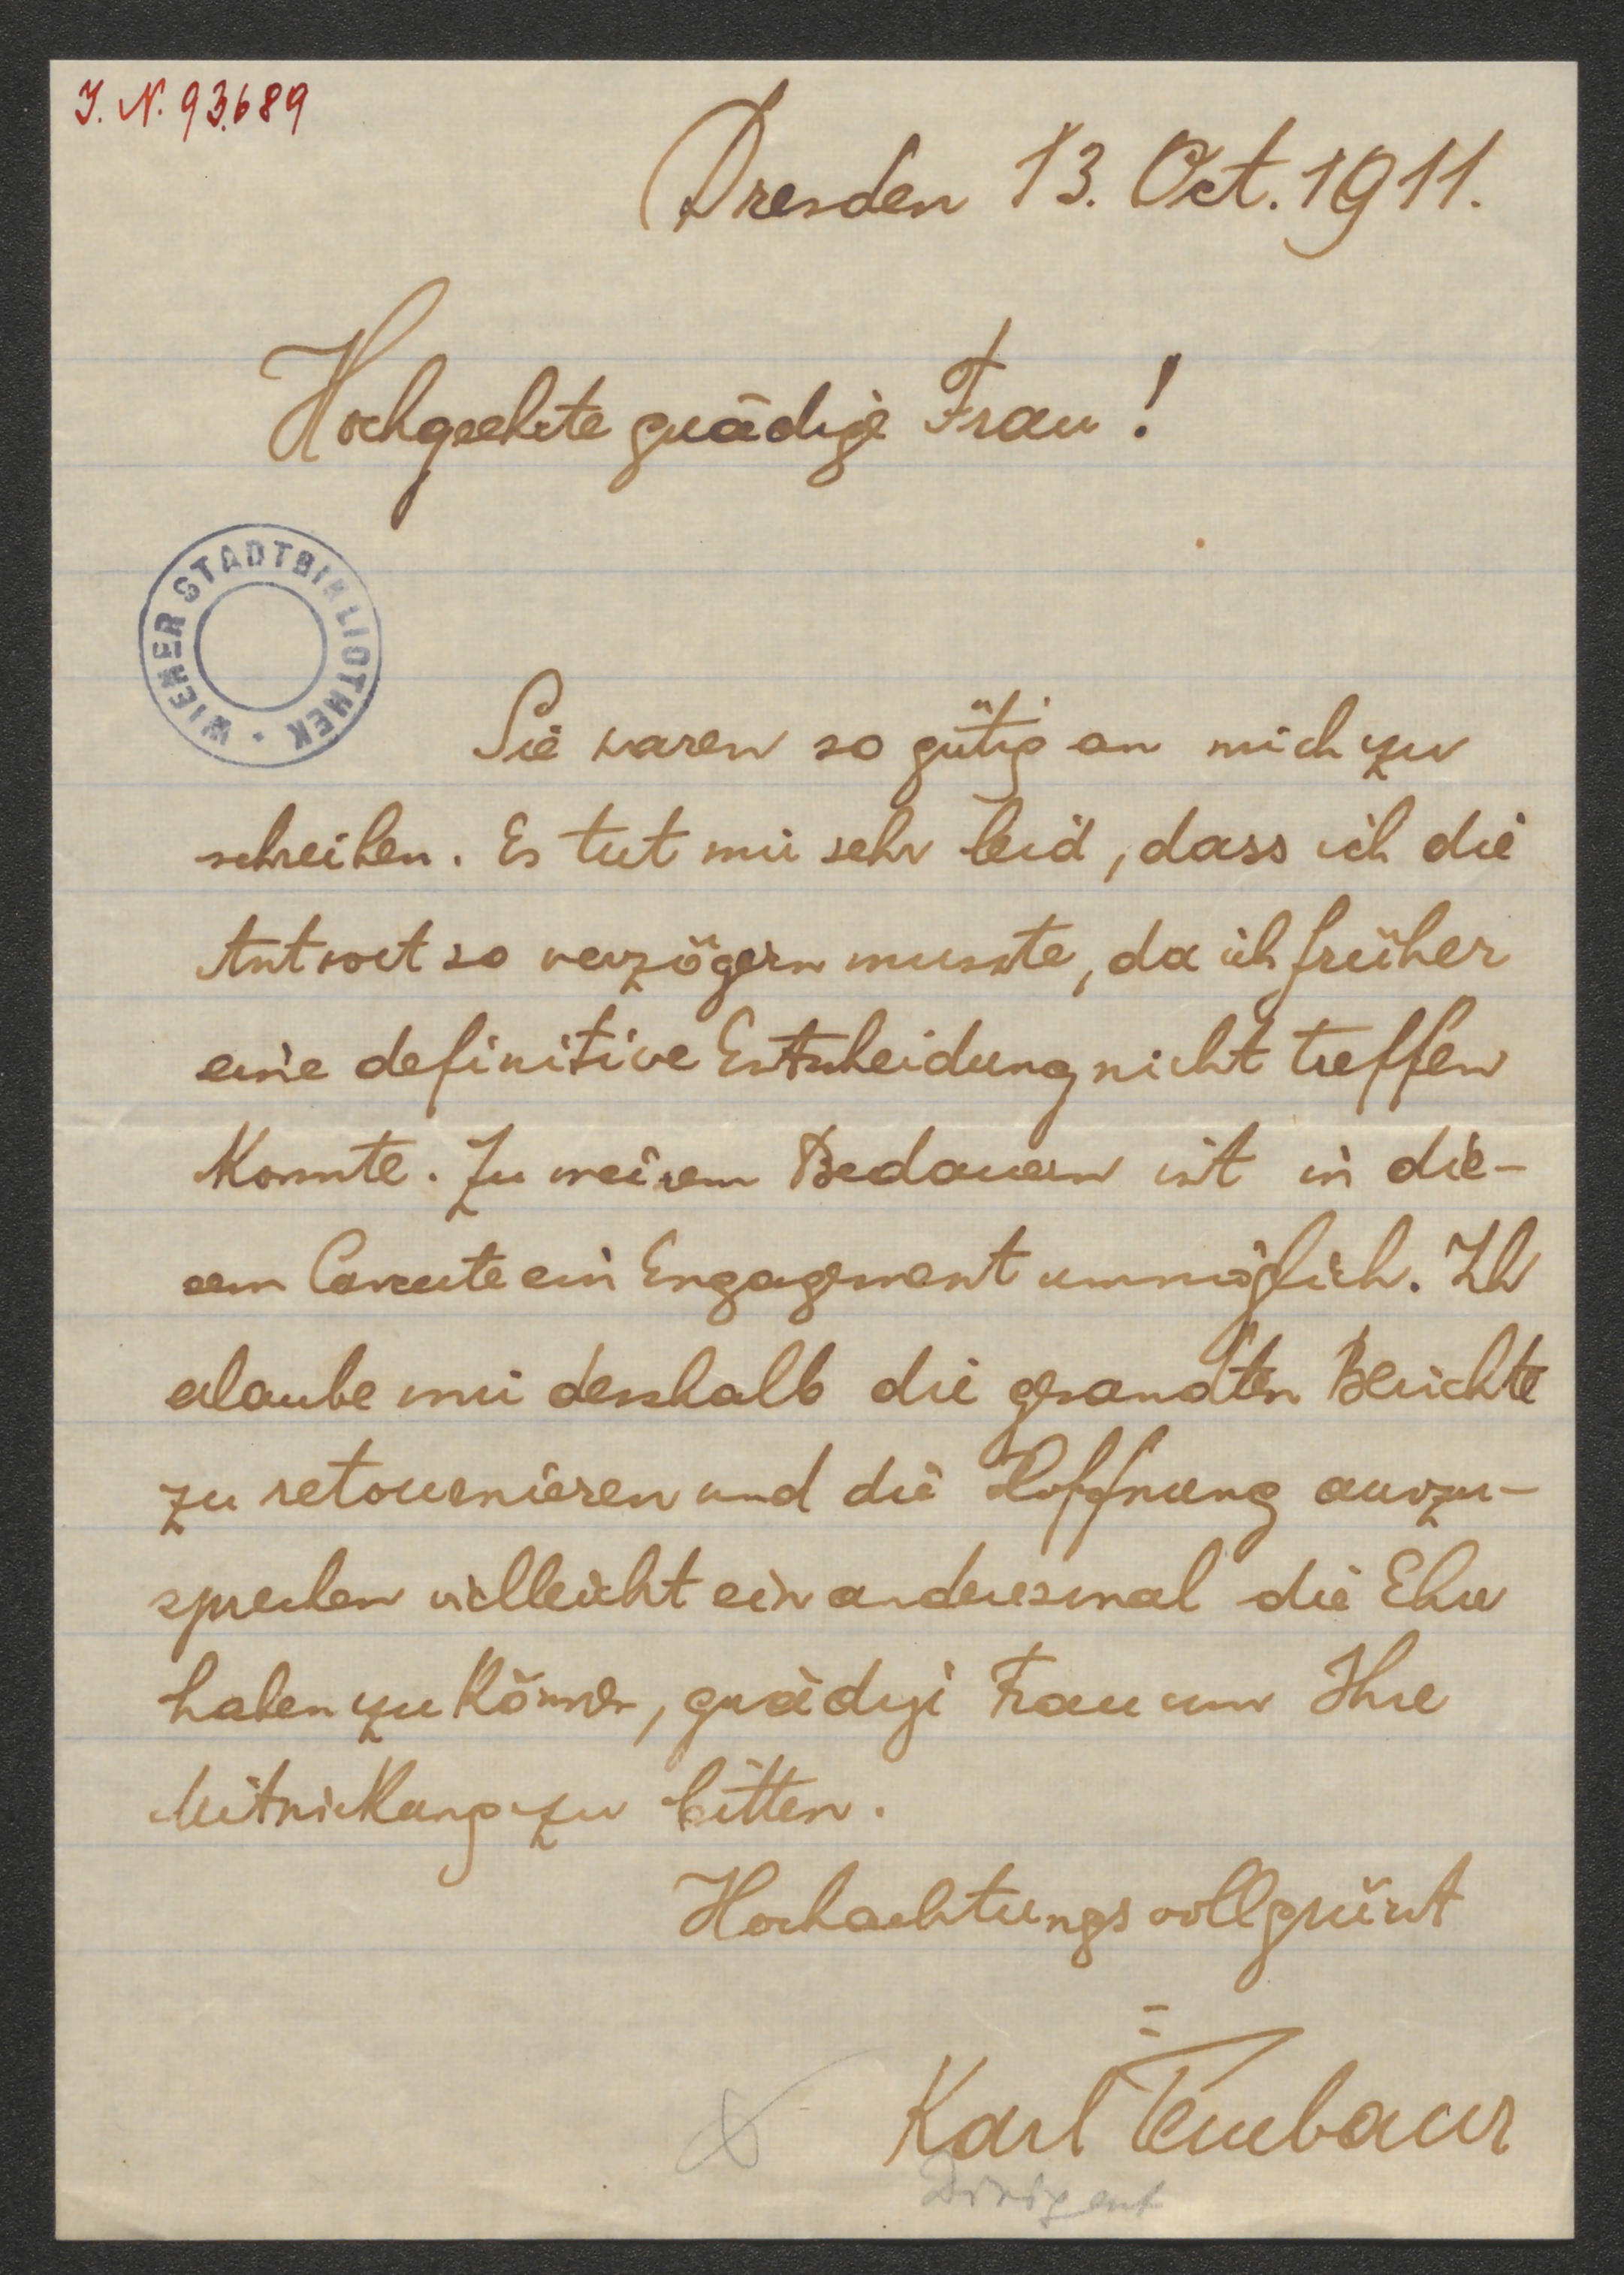 J. N. 93.689
Dresden 13. Oct. 1911.
Hochgeehrte gnädige Frau!
WIENER STADTBIBLIOTHEK
Sie waren so gütig an mich zu
schreiben. Es tut mir sehr leid, dass ich die
Antwort so verzögern musste, da ich früher
eine definitive Entscheidung nicht treffen
konnte. Zu meinem Bedauern ist in die-
sem Concerte ein Engagement unmöglich. Ich
erlaube mir desshalb die gesandten Berichte
zu retournieren und die Hoffnung auszu-
sprechen vielleicht ein anderesmal die Ehre
haben zu können, gnädige Frau um Ihre
Mitwirkung zu bitten.
Hochachtungsvoll grüsst
Karl
Dirigent